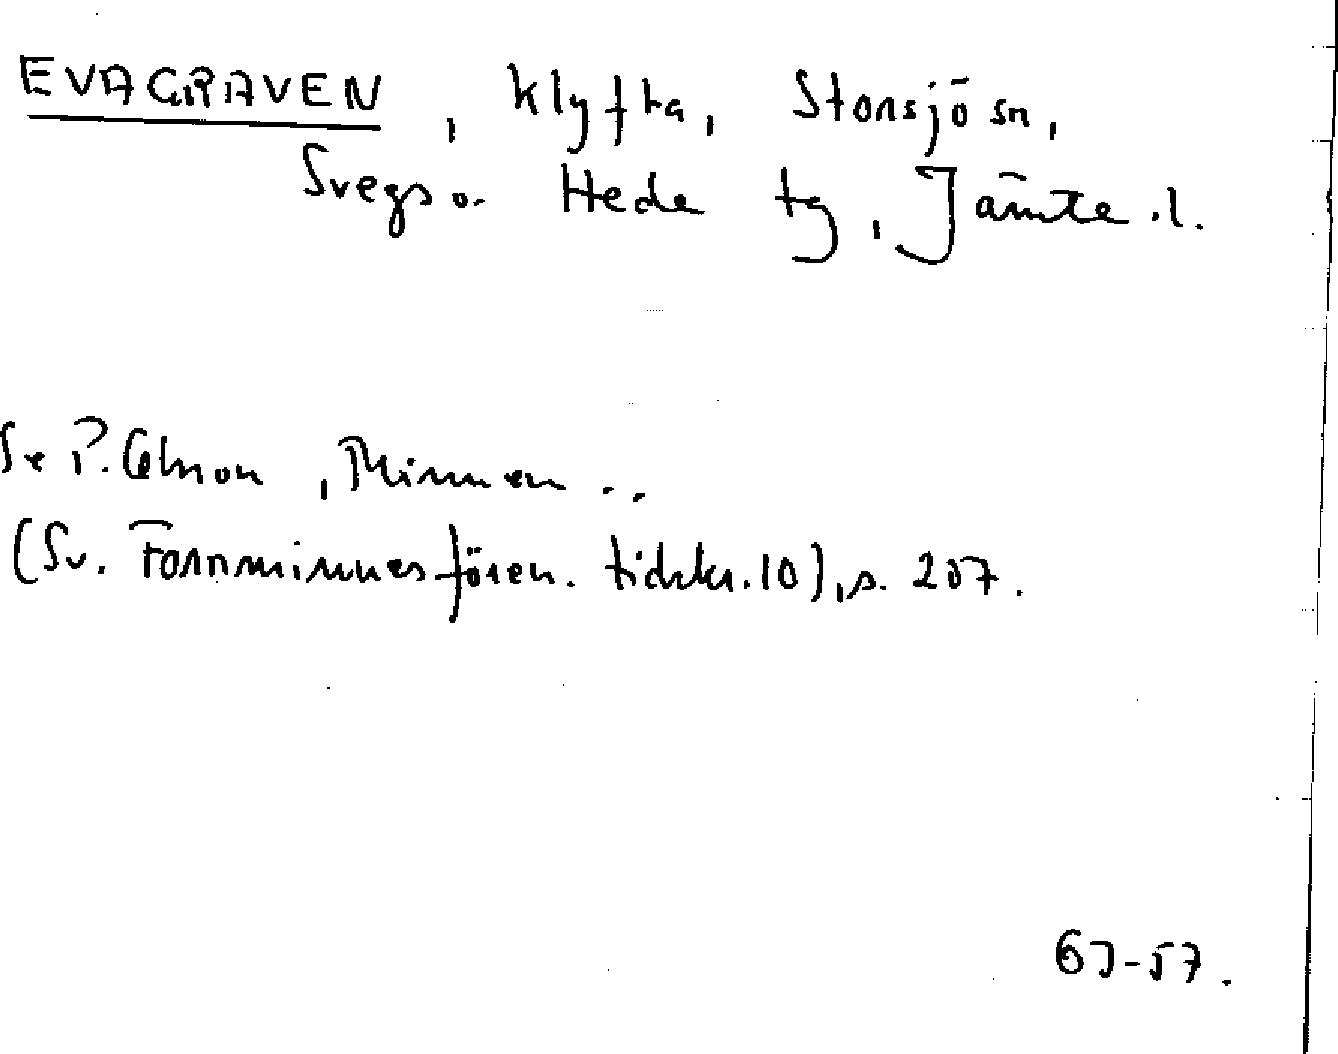 EVAGRAVEN, klyfta, Storsjö sn,
Svegs o. Hede tg, Jämte. l.
Se P. Olsson, Minnen ..
(Sv. Fornminnesfören. tidskr. 10), s. 207.
63-57.